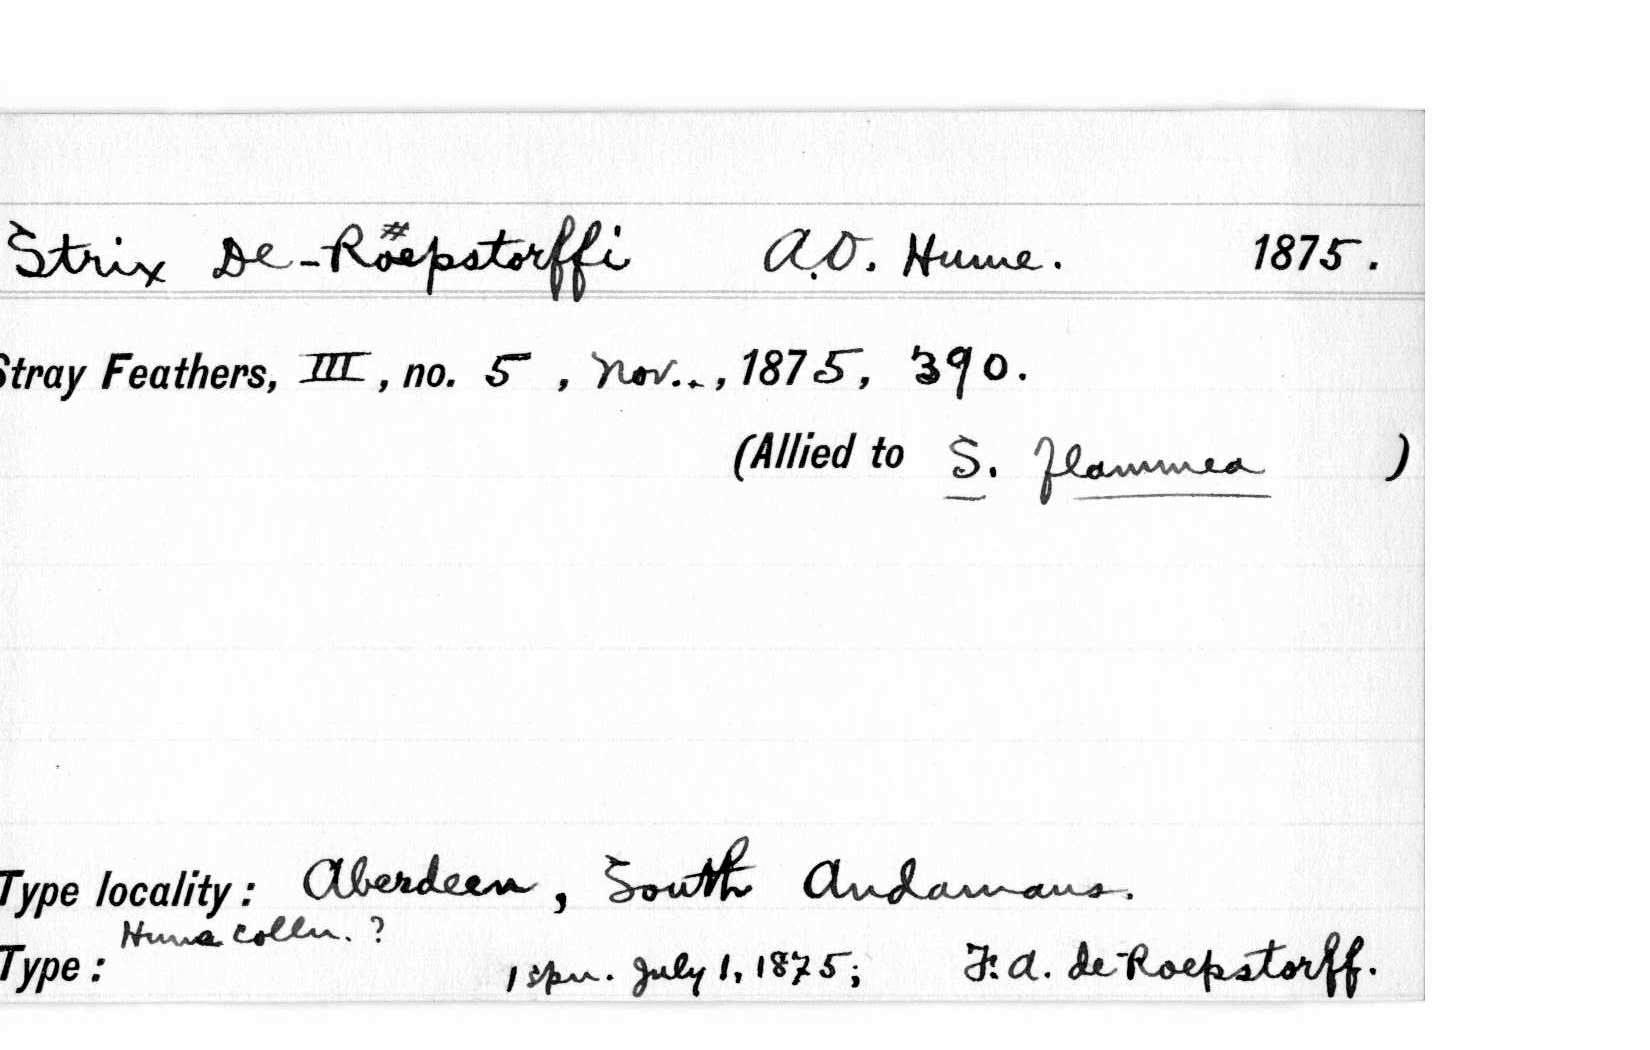 Strix De-Roepstorffi A.O. Hume. 1875.
Stray Feathers, III, no. 5, Nov.., 1875, 390.
(Allied to S. flammea )
Type locality: Aberdeen, South Andamans.
Hume colln. ?
Type: 1 spn. July 1, 1875; F. A. de Roepstorff.